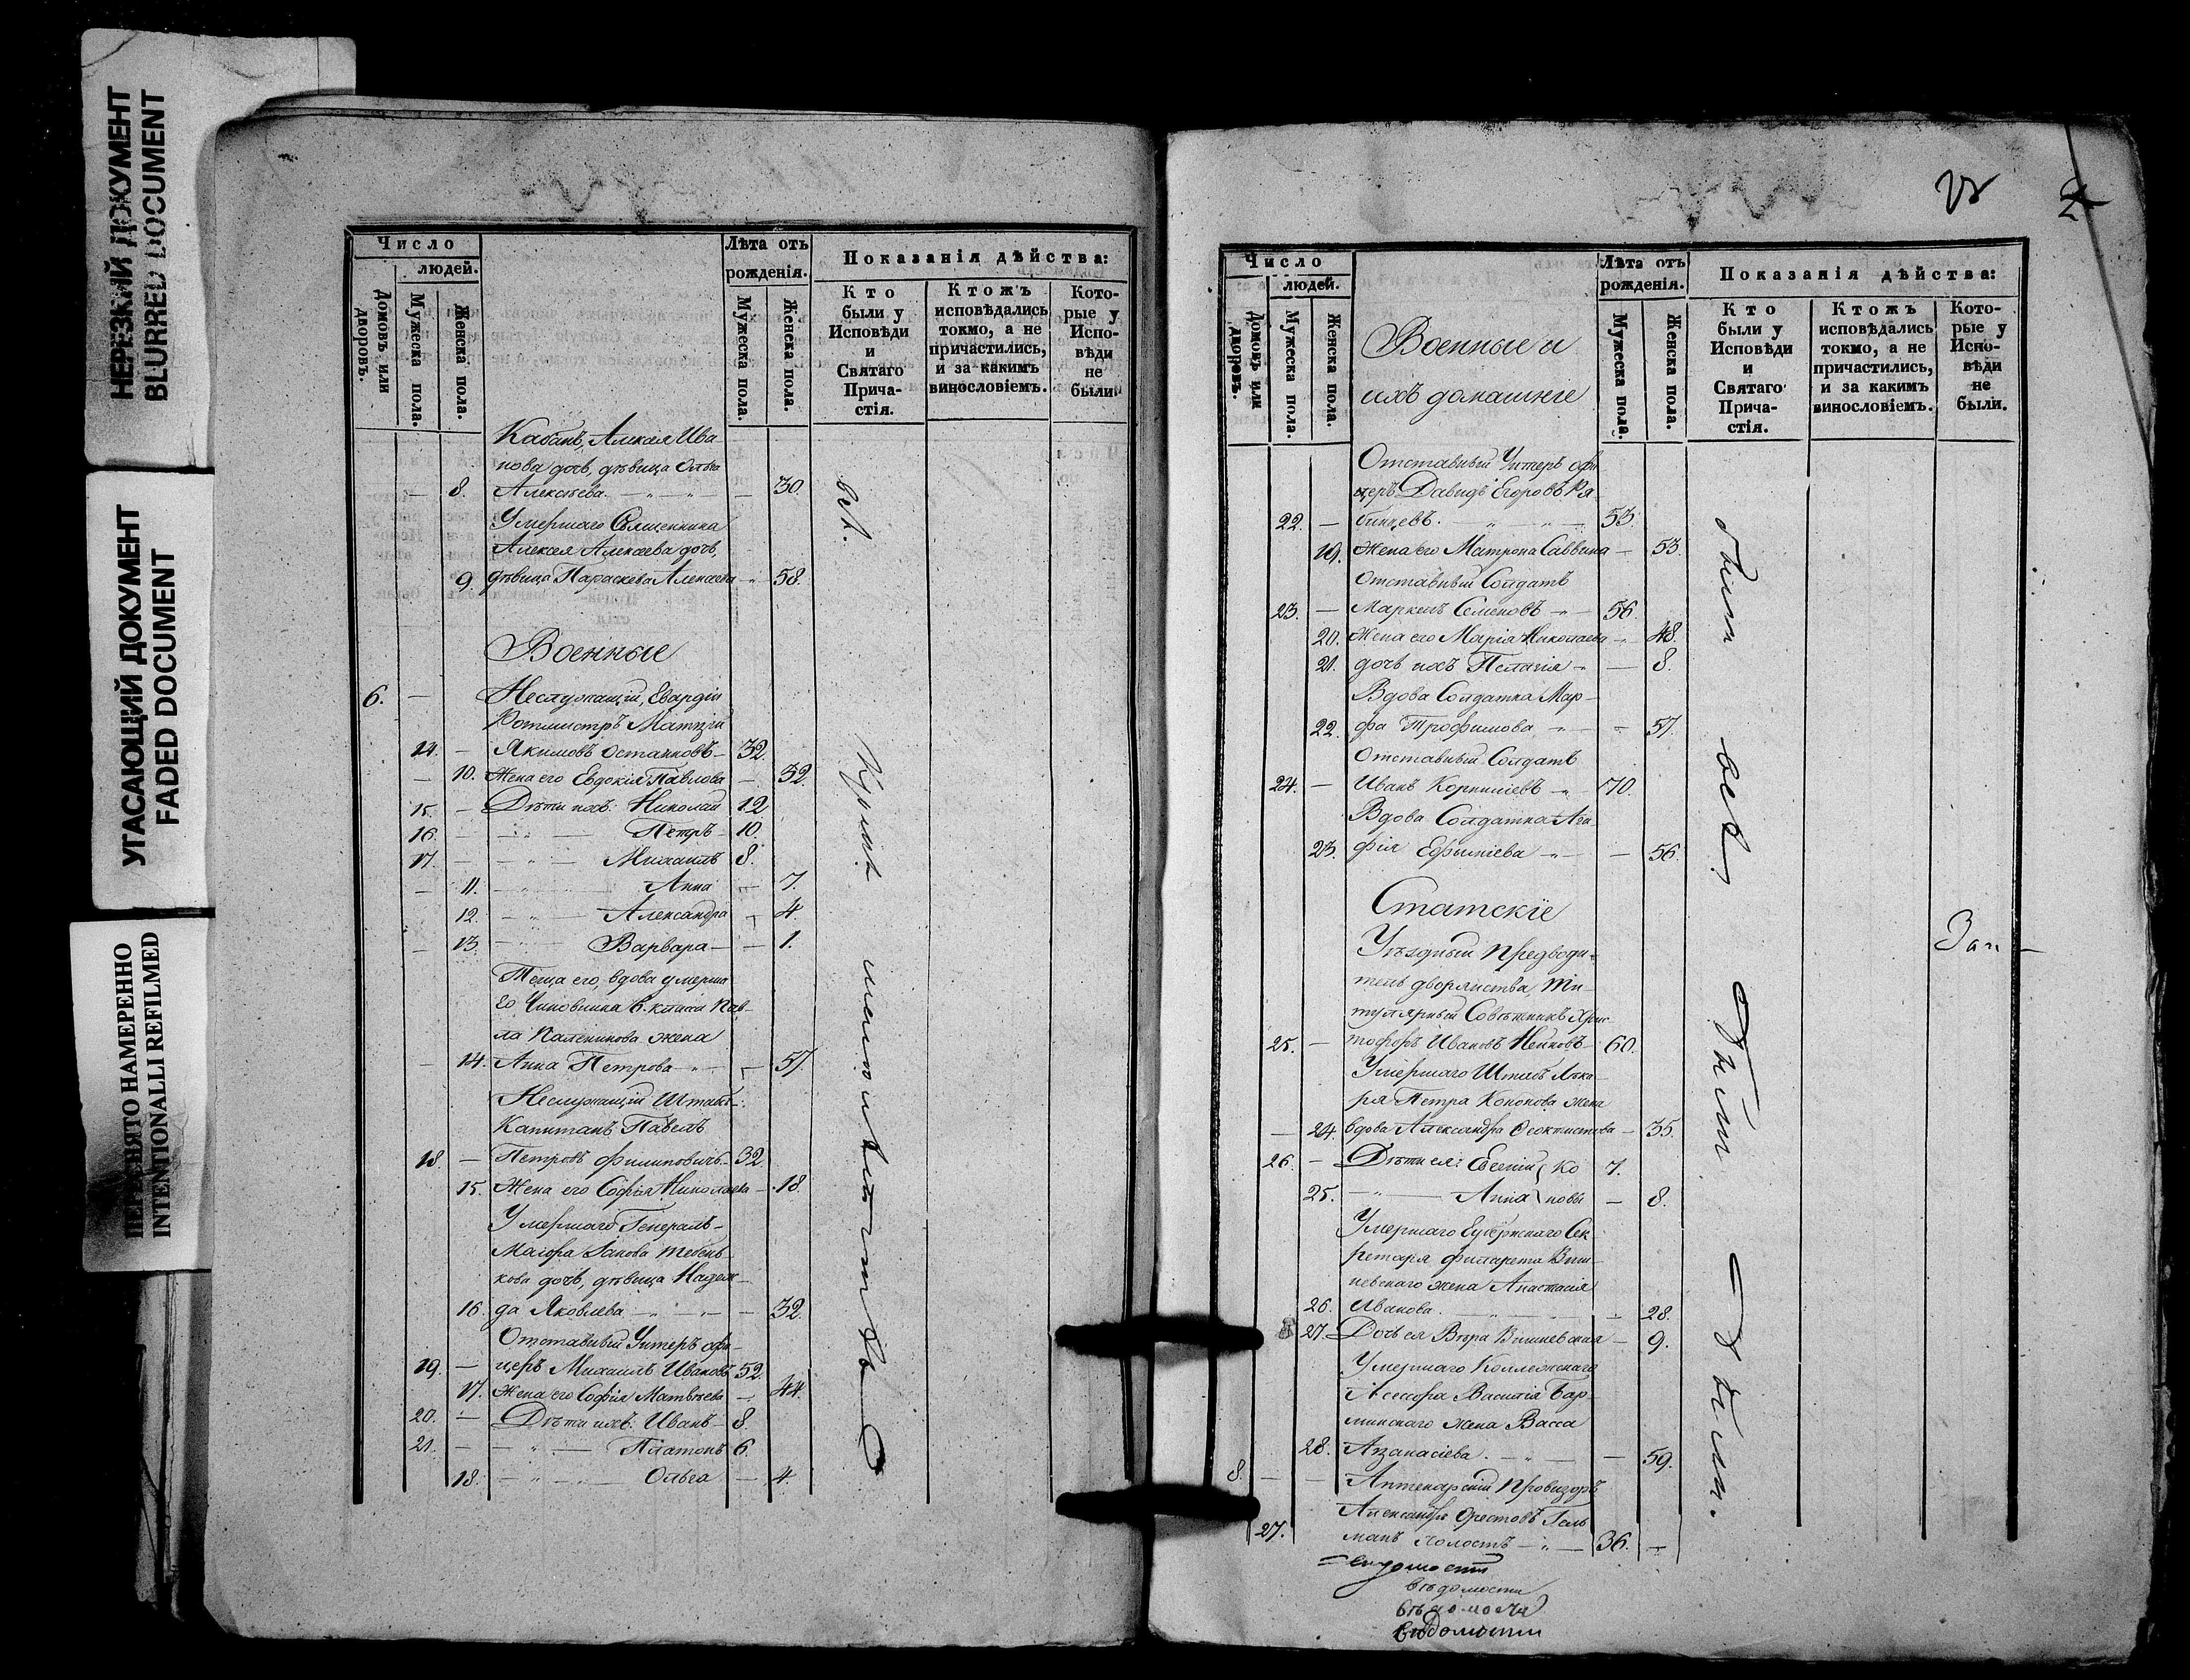 НЕРЕЗКИЙ ДОКУМЕНТ
BLURRED DOCUMENT
УГАСАЮЩИЙ ДОКУМЕНТ
FADED DOCUMENT
ПЕРЕСНЯТО НАМЕРЕННО
INTENTIONALLI REFILMED
Число
людей.
Домовъ или дворовъ.
Мужеска пола.
Женска пола.
Лѣта отъ
рожденія.
Мужеска пола.
Женска пола.
Показанія дѣйства:
Кто
были у
Исповѣди
и
Святаго
Прича-
стія.
Ктожъ
исповѣдались
токмо, а не
причастились,
и за какимъ
винословіемъ.
Кото-
рые у
Испо-
вѣди
не
были.
Алексѣя Ива
нова дочь, дѣвица Ольга
8. Алексѣева. 30.
Умершаго Священника
Алексея Алексѣева дочь,
9. дѣвица Параскева Алексѣева 58.
Военные
6. Неслужащій, Гвардіи
Ротмистръ
14. Якимовъ Остановъ 32.
10. Жена его Евдокія Павлова 32.
15. Дѣти ихъ: Николай 12
16. Петръ 10.
17. Михаилъ 8.
11. Анна 7.
12. Александра 4.
13. Варвара 1.
Теща его, вдова умерша
го Чиновника 6. класса Пав-
ла жена
14. Анна Петрова 57.
Неслужащій Штабъ-
Капитанъ Павелъ
18. Петровъ Филиповичъ 32.
15. Жена его Софія Николаева 18.
Умершаго Генералъ-
Маіора Якова Тебень-
кова дочь, дѣвица Надеж-
16. да Яковлева 32.
Отставный Унтеръ офи-
19. церъ Михаилъ Ивановъ 52.
17. Жена его Софія Матвѣева 44.
20. Дѣти ихъ: Иванъ 8.
21. Платонъ 6.
18. Ольга 4.
2
Число
людей.
Домовъ или дворовъ.
Мужеска пола.
Женска пола.
Военные и
ихъ домашніе
Лѣта отъ
рожденія.
Мужеска пола.
Женска пола.
Показанія дѣйства:
Кто
были у
Исповѣди
и
Святаго
Прича-
стія.
Ктожъ
исповѣдались
токмо, а не
причастились,
и за какимъ
винословіемъ.
Кото-
рые у
Испо-
вѣди
не
были.
Отставный Унтеръ офи
церъ Давидъ Егоровъ Ря-
22. бинцевъ. 53.
19. Жена его Матрона Саввина 53.
Отставный Солдатъ
23. Маркелъ Семеновъ 56.
20. Жена его Марія Николаева 48.
21. дочь ихъ Пелагія 8.
Вдова Солдатка Мар-
22. фа Трофимова 57.
Отставный Солдатъ
24. Иванъ Корниліевъ 70.
Вдова Солдатка Ага-
23. фія Ефиміева 56.
Статскіе
Уѣздный Предводи-
тель дворянства, Ти-
тулярный Совѣтникъ Хрис-
25. тофоръ Ивановъ 60.
Умершаго Штабъ Лѣка-
ря Петра Кононова жена
24. вдова Александра Феоктистова 35.
26. Дѣти ея: Евгеній Ко 7.
25. Анна новы 8.
Умершаго Губернскаго Сек
ретаря Филарета Виш-
невскаго жена Анастасія
26. Иванова. 28.
27. Дочь ея Вѣра Вишневская 9.
Умершаго Коллежскаго
Асессора Василія Бар-
минскаго жена Васса
28. Аѳанасіева. 59.
8. Аптекарскій Провизоръ
Александръ Орестовъ Гель
27. манъ холостъ 36.
вѣдомости
вѣдомости
вѣдомости